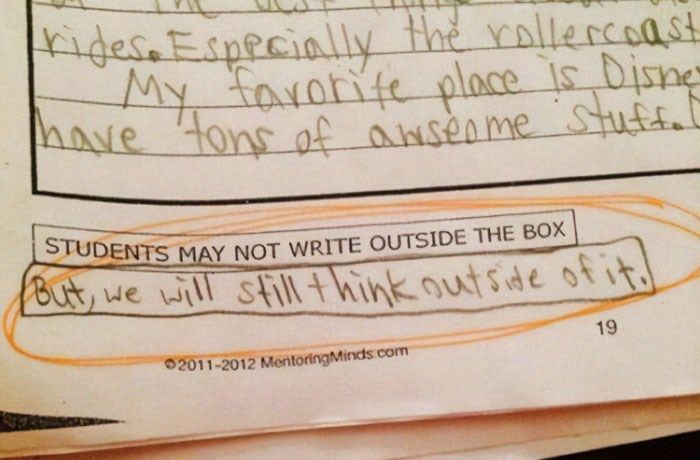 the best
rides. Especially the rollercoast
My favorite place is Disne
have tons of awseome stuff.
STUDENTS MAY NOT WRITE OUTSIDE THE BOX
But, we will still think outside of it.
19
©2011-2012 MentoringMinds.com